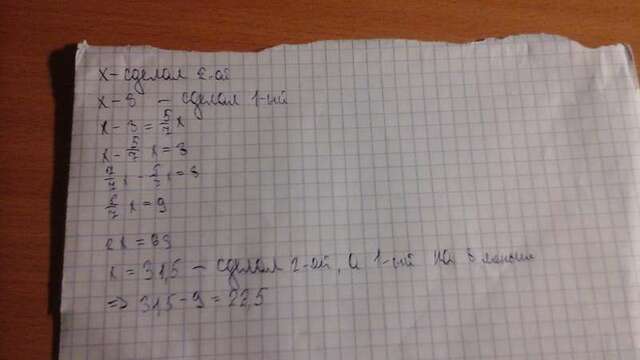 х - сделал 2-ой
х - 9 - сделал 1-ый
х - 9 = 5/7 х
х - 5/7 х = 9
7/7 х - 5/7 х = 9
2/7 х = 9
2х = 63
х = 31,5 - сделал 2-ой, а 1-ый на 9 меньше
=> 31,5 - 9 = 22,5